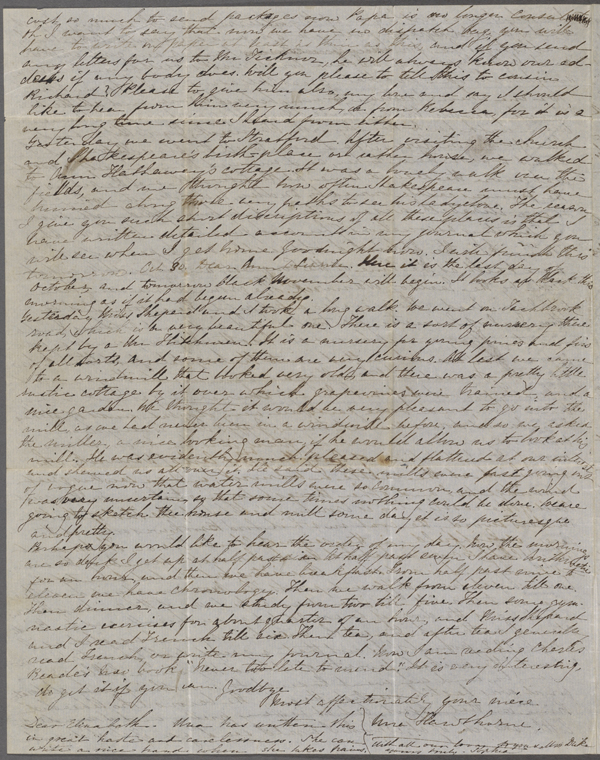 cost, so much to send packages now Papa is no longer Consul
Oh I want to say that now we have no dispatch bag, you will
have to
any letters for us to Mr Ticknor, he will always know our ad-
dress if any body does. Will you please to tell this to cousin
Richard? Please to give him also, my love and say I should
like to hear from him very much, & from Rebecca, for it is a
very long time since I heard from either.
Yesterday we went to Stratford. After visiting the church
and Shakespeare's birthplace we walked
to Ann Hathaway's cottage. It was a lovely walk over the
fields, and we thought how often Shakespeare must have
roamed along those very paths to see his ladylove. The reason
I give you such short discriptions of all these places is that I
have written detailed accounts in my journal which you
will see when I get home. Goodnight now. I will finish this
tomorrow. Oct 30. Dear Aunt Lizzie. Here it is the last day
October, and tomorrow black November will begin. It looks as black this
morning as if it had begun already.
Yesterday Miss Shepard and I took a long walk. We went on Tachbrook
road, which is a very beautiful one. There is a sort of nursery there
kept by a Mr Hitchman. It is a nursery for young pines and firs
of all sorts, and some of them are very curious. At last we came
to a windmill that looked very old, and there was a pretty little
rustic cottage by it over which grapevines were trained, and a
nice garden. We thought it would be very pleasant to go into the
mill, as we had never been in a windmill before, and so we asked
the miller, a nice looking man, if he would allow us to look at his
mill. He was evidently much pleased and flattered at our
and showed us all over it. He said these mills were fast going out
of vogue now that water mills were so common, and the wind
was very uncertain, so that some times nothing could be done. We are
going to sketch the house and mill some day, it is so picturesque
and pretty.
Perhaps you would like to hear the order of my day. Now the mornings
are so dark I get up at half past six & half past seven
for an hour, and then we have breakfast. From half past nine to
eleven we have Chronology. Then we walk from eleven till one.
Then dinner, and we study from two till five. Then some gym-
nastic exercises for about quarter of an hour, and Miss Shepard
and I read French till six. Then tea, and after tea I generally
read French, or write my journal. Now I am reading Charles
Reade's new book, "Never too late to mend". It is very interesting,
do get it if you can. Goodbye.
Most affectionately your niece
Una Hawthorne.
Dear Elizabeth. Una has written this
in great haste and carelessness. She can
write a nice hand when she takes pains.
With all our love to you & Miss Dike